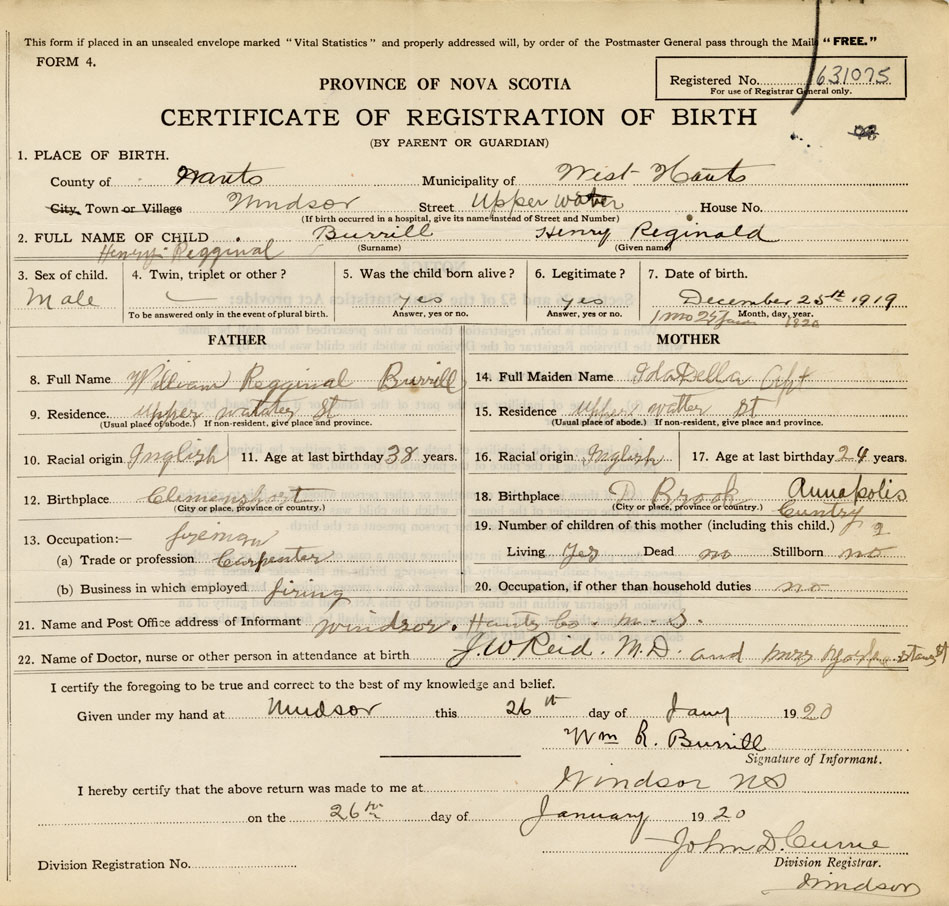 This form if placed in an unsealed envelope marked "Vital Statistics" and properly addressed will, by order of the Postmaster General pass through the Mails "FREE."
FORM 4.
Registered No. 631075
For use of Registrar General only.
PROVINCE OF NOVA SCOTIA
CERTIFICATE OF REGISTRATION OF BIRTH
(BY PARENT OR GUARDIAN)
1. PLACE OF BIRTH.
County of Hants Municipality of West Hants
City, Town or Village Windsor Street Upper water House No.
(If birth occurred in a hospital, give its name instead of Street and Number)
2. FULL NAME OF CHILD Burrill Henry Reginald
Henry Regginal (Surname) (Given name)
3. Sex of child. 4. Twin, triplet or other? 5. Was the child born alive? 6. Legitimate? 7. Date of birth.
Male yes yes December 25th 1919
To be answered only in the event of plural birth. Answer, yes or no. Answer, yes or no. Month, day, year.
1920
FATHER MOTHER
8. Full Name William Regginal Burrill
14. Full Maiden Name Ida Bella
9. Residence. upper watater St
(Usual place of abode.) If non-resident, give place and province.
15. Residence upper watter St
(Usual place of abode.) If non-resident, give place and province.
10. Racial origin Inglish 11. Age at last birthday 38 years.
16. Racial origin Inglish 17. Age at last birthday 24 years.
12. Birthplace Clemenshort
(City or place, province or country.)
18. Birthplace D Brook Annapolis
(City or place, province or country.) Cuntry
13. Occupation:— fireman
(a) Trade or profession Carpenter
(b) Business in which employed firing
19. Number of children of this mother (including this child.) 2
Living yes Dead no Stillborn no
20. Occupation, if other than household duties no
21. Name and Post Office address of Informant Windsor. Hants Co. N. S.
22. Name of Doctor, nurse or other person in attendance at birth J. W Reid. M.D. and
I certify the foregoing to be true and correct to the best of my knowledge and belief.
Given under my hand at Windsor this 26th day of Jany 1920
Wm R. Burrill
Signature of Informant.
I hereby certify that the above return was made to me at Windsor NS
on the 26th day of January 1920
John D. Currie
Division Registration No. Division Registrar.
Windsor